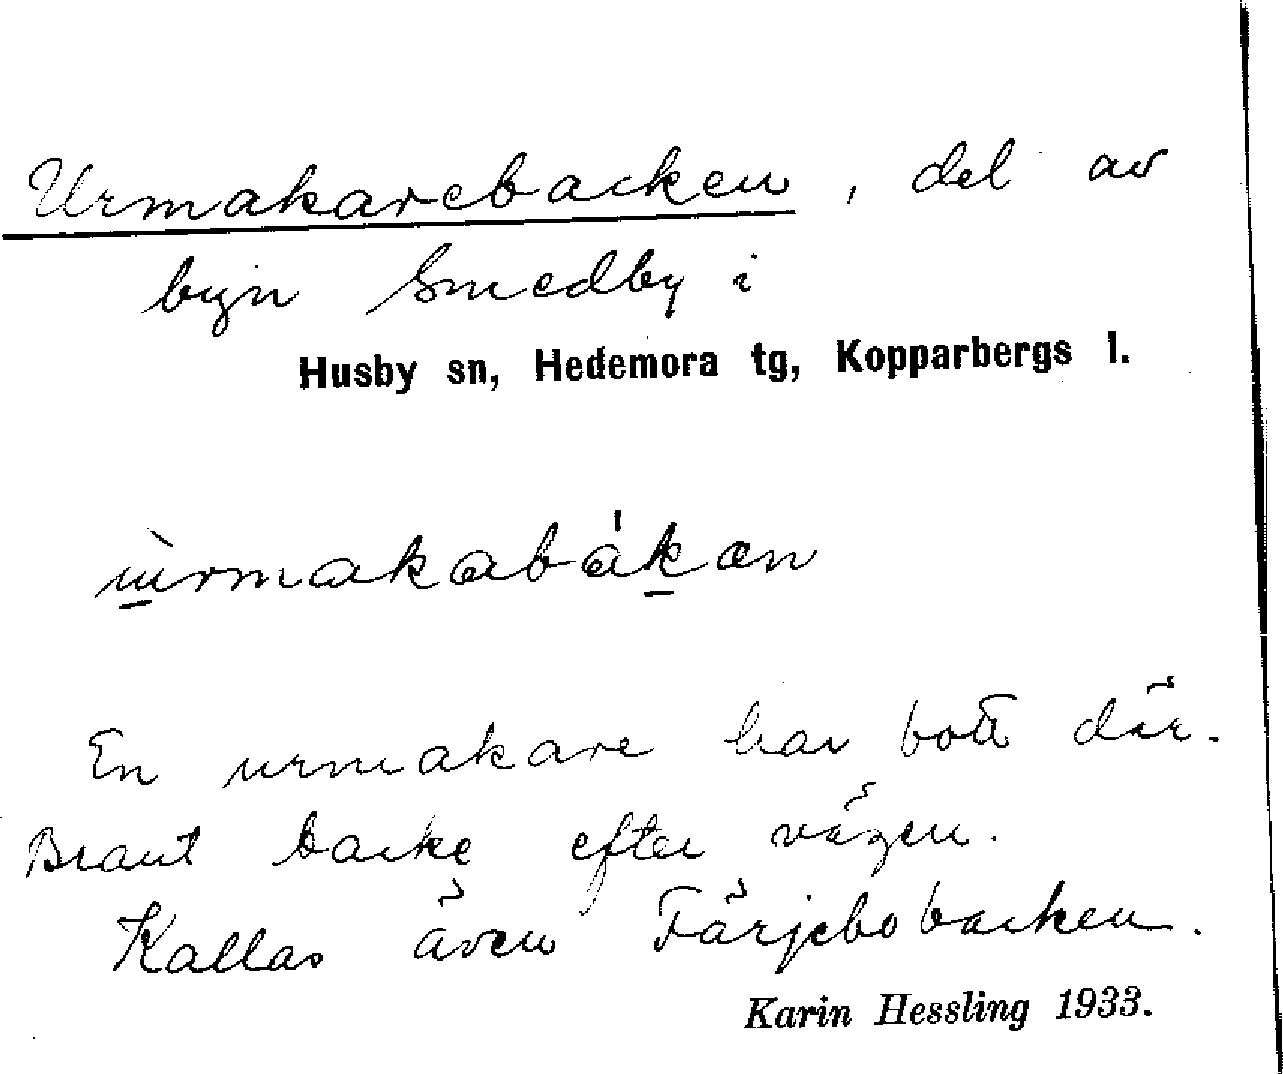 Urmakarebacken, del av
byn Smedby i
Husby sn, Hedemora tg, Kopparbergs l.
ùrmakabákæn
En urmakare har bott där.
Brant backe efter vägen.
Kallas även Färjebobacken.
Karin Hessling 1933.